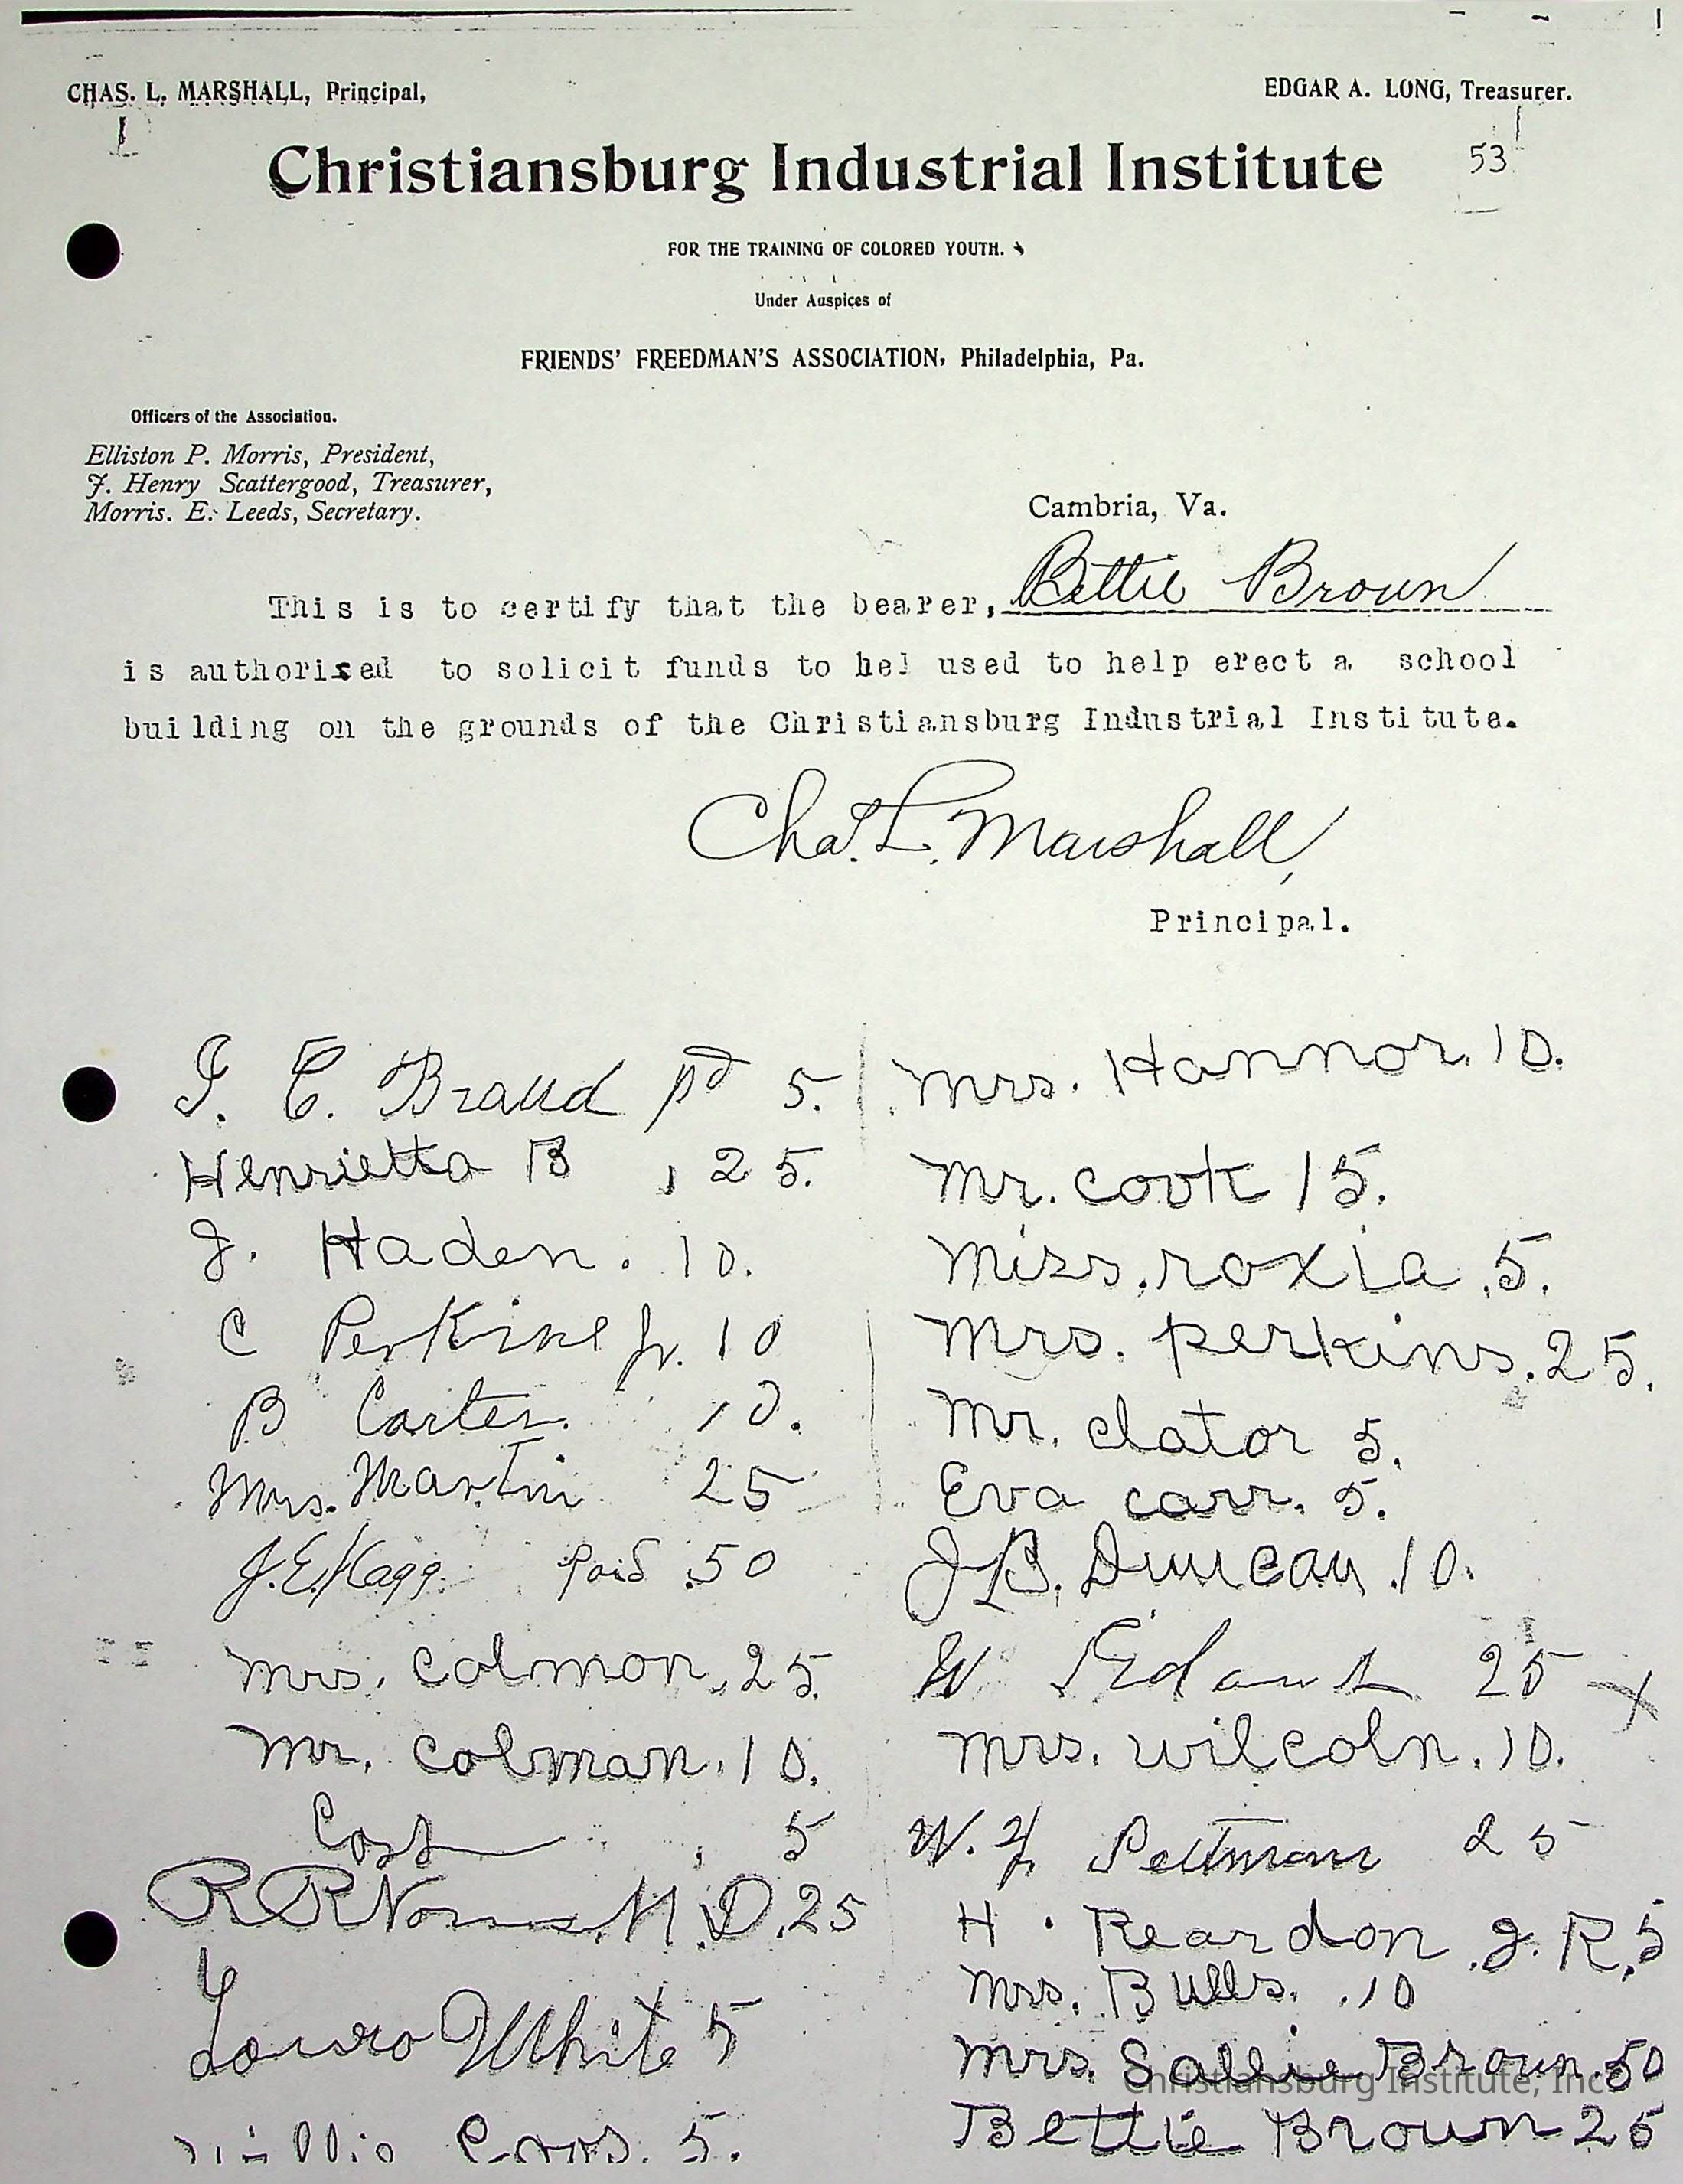 CHAS. L. MARSHALL, Principal,
EDGAR A. LONG, Treasurer.
Christiansburg Industrial Institute
53
FOR THE TRAINING OF COLORED YOUTH.
Under Auspices of
FRIENDS' FREEDMAN'S ASSOCIATION, Philadelphia, Pa.
Officers of the Association.
Elliston P. Morris, President,
J. Henry Scattergood, Treasurer,
Morris. E. Leeds, Secretary.
Cambria, Va.
This is to certify that the bearer, Bettie Brown
is authorised to solicit funds to be used to help erect a school
building on the grounds of the Christiansburg Industrial Institute.
Chas. L. Marshall,
Principal.
pd 5.
Henrietta B , 25.
J. Haden. 10.
C Perkins Jr. 10
B Carter. 10.
Mrs. Martin 25
J.E. Paid .50
mrs. Colmon. 25.
mr. Colman. 10.
5
M.D. 25
White 5
5.
Mrs. Hannor. 10.
Mr. Cook 15.
Miss. roxia .5.
Mrs. perkins. 25.
Mr. clator 5.
Eva carr. 5.
J.B. Duncan .10.
W. 25
mrs. wilcoln. 10.
W. 25
H. Reardon J. R. 5
Mrs. Bulls. .10
Mrs. Sallie Brown. 50
Bettie Brown 25
Christiansburg Institute, Inc.